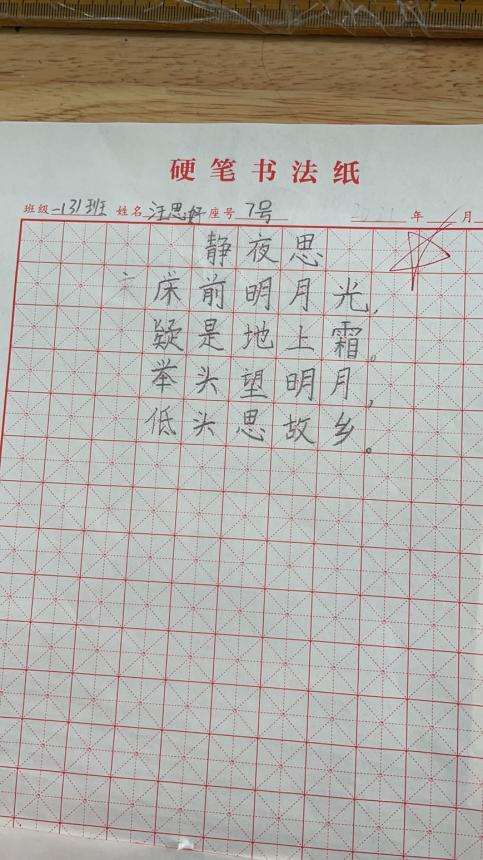 硬笔书法纸
班级 131班 姓名 汪思妤 座号 7号 2021 年 月
静夜思
床前明月光，
疑是地上霜。
举头望明月，
低头思故乡。